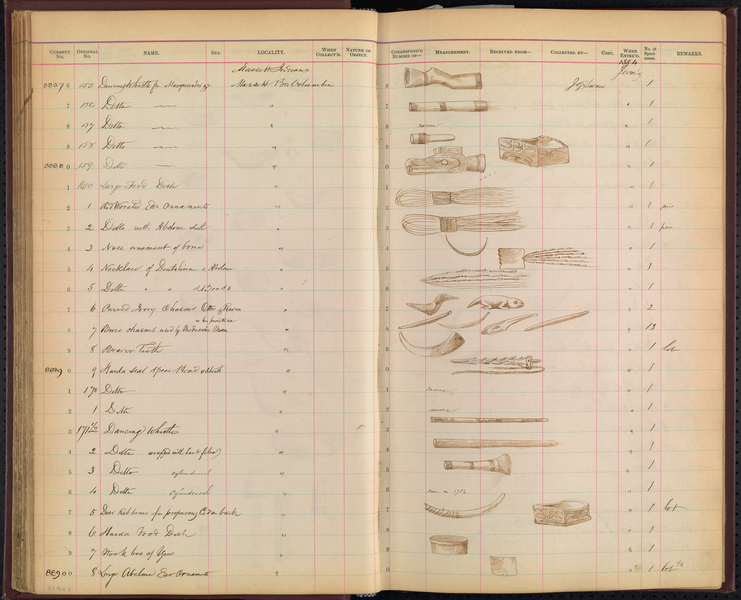 CURRENT No. ORIGINAL No. NAME. SEX. LOCALITY. WHEN COLLECT'D. NATURE OF OBJECT. CORRESPOND'G NUMBER OF— MEASUREMENT. RECEIVED FROM— COLLECTED BY— COST. WHEN ENTER'D. No. of Specimens. REMARKS.
Massett Indians 1884
155 Dancing Whistle for Masquerade Massett Brit Columbia 1
7 156 Ditto " 1
8 157 Ditto " 1
9 158 Ditto " 1
0 159 Ditto " 1
1 160 Large Food Dish " 1
2 1 Ear Ornaments " 1 pair
3 2 Ditto with Abelone shell " 1 pair
4 3 Nose ornament of bone " 1
5 4 Necklace of Dentalium & Abelone " 1
6 5 Ditto " " & Beads " 1
7 6 Carved Ivory Charms Otter & Raven " 2
8 7 Bone charms used by Medicine Man " 13
9 8 Beaver Teeth " lot
8890 9 Haida Seal Spear Head & Sheath " 1
1 170 Ditto " 1
2 1 Ditto " 1
3 171½ Dancing Whistle " 1
4 2 Ditto wrapped with bark fiber " 1
5 3 Ditto cylindrical " 1
6 4 Ditto cylindrical " 1
7 5 Deer Rib bones for preparing Cedar bark " 1 lot
8 6 Haida Food Dish " 1
9 7 Work box of Yew " 1
88900 8 Large Abelone Ear Ornaments " 1 lot